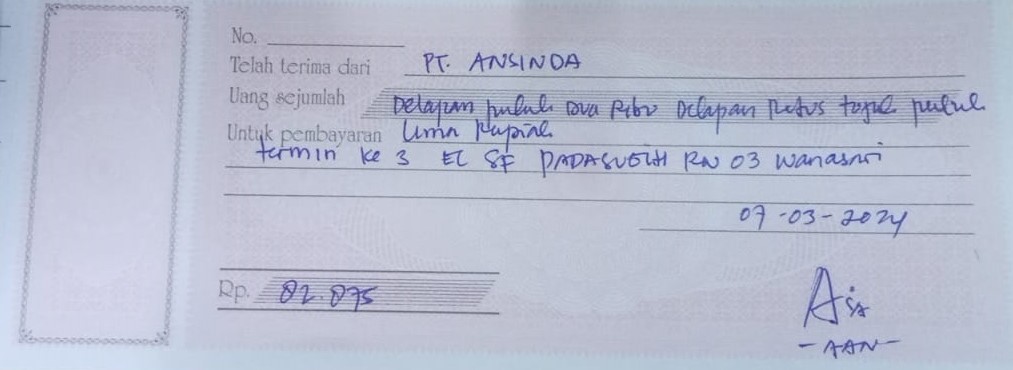 No.
Telah terima dari PT. ANSINDA
Uang sejumlah Delapan puluh Dua Ribu Delapan Ratus tujuh puluh
Untuk pembayaran Lima Rupiah
termin ke 3 EC SF PADASUGIH RW 03 Wanasari
07-03-2024
Rp. 82.875
-AAN-